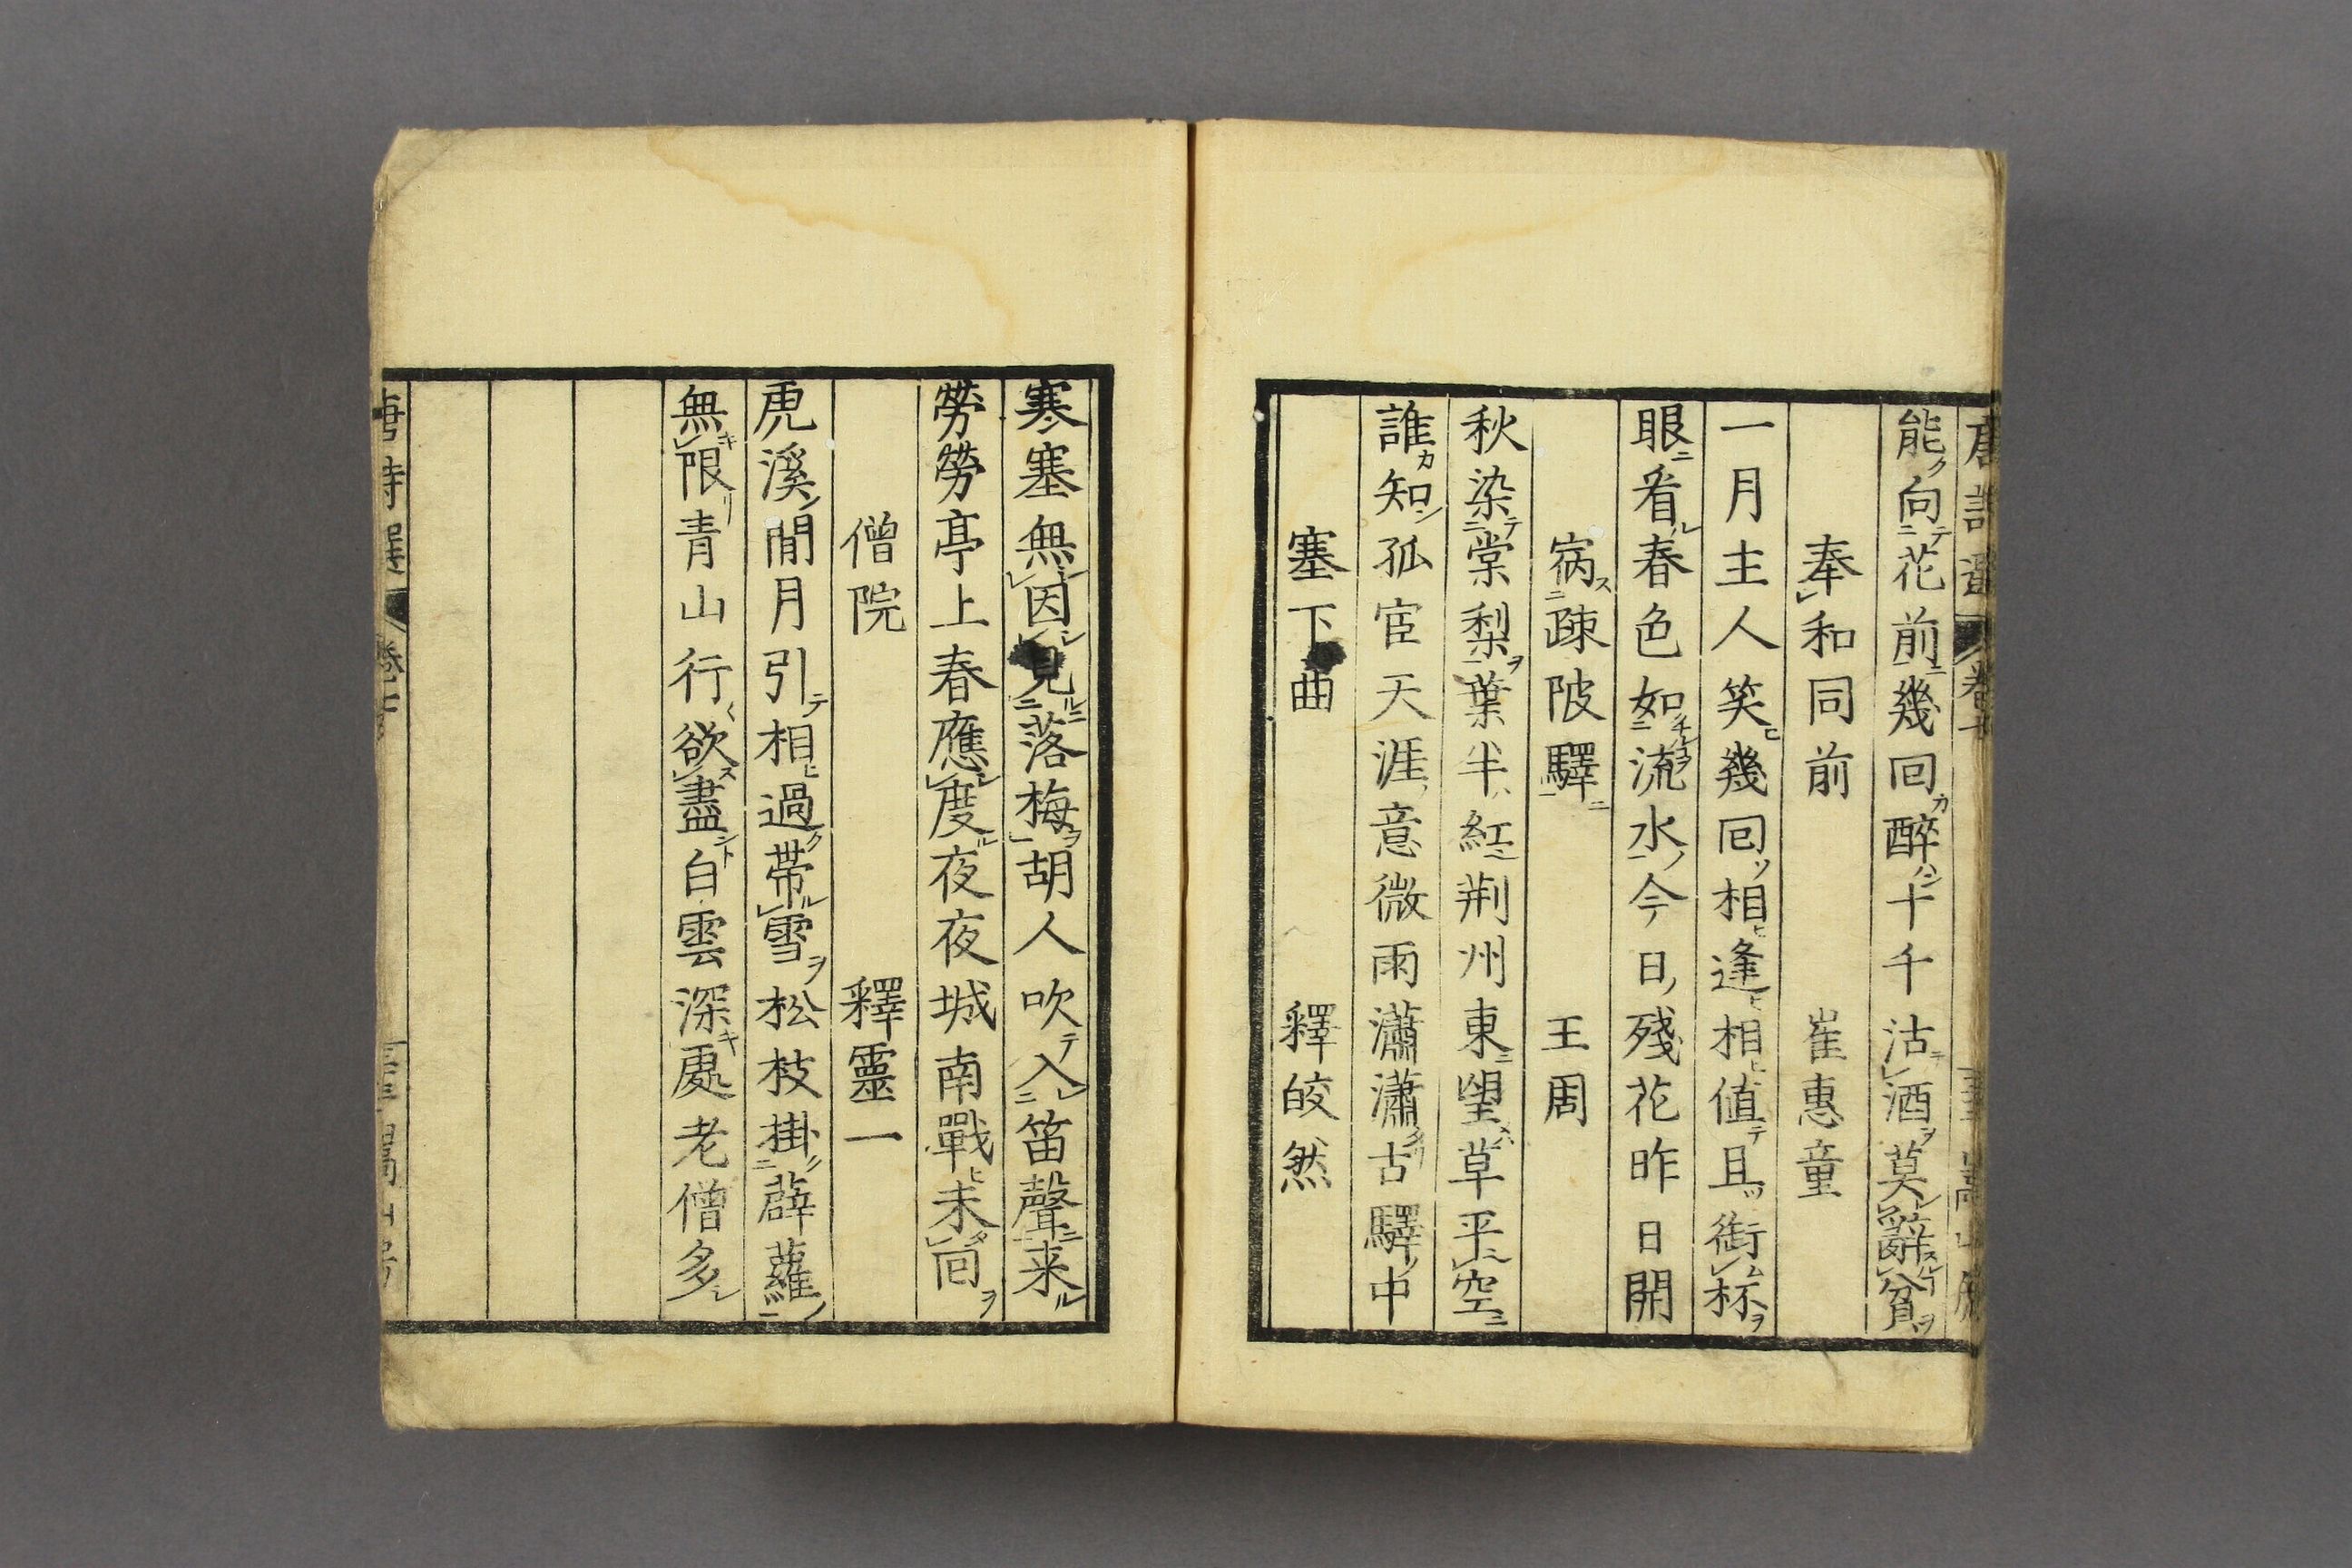 能向花前幾回醉十千沽酒莫辭貧
奉和同前　崔惠童
一月主人笑幾回相逢相値且銜杯
眼看春色如流水今日殘花昨日開
宿疎陂驛　王周
秋染棠梨葉半紅荆州東望草平空
誰知孤宦天涯意微雨瀟瀟古驛中
塞下曲　釋皎然
寒塞無因見落梅胡人吹入笛聲来
勞勞亭上春應度夜夜城南戰未囘
僧院　釋靈一
虎溪閒月引相過帶雪松枝掛薜蘿
無限青山行欲盡白雲深處老僧多
唐詩選